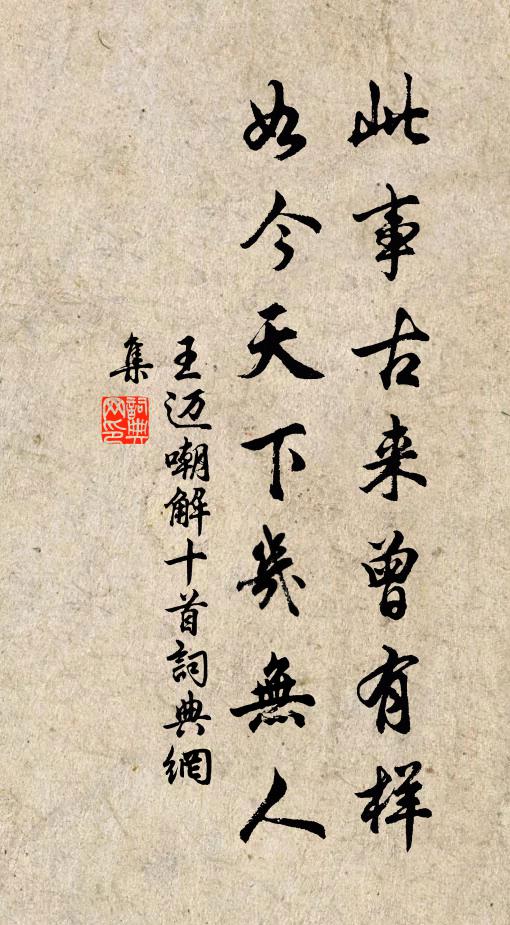 此事古来曾有样
如今天下几無人
王迈嘲解十首詞典網
集
詞典网印